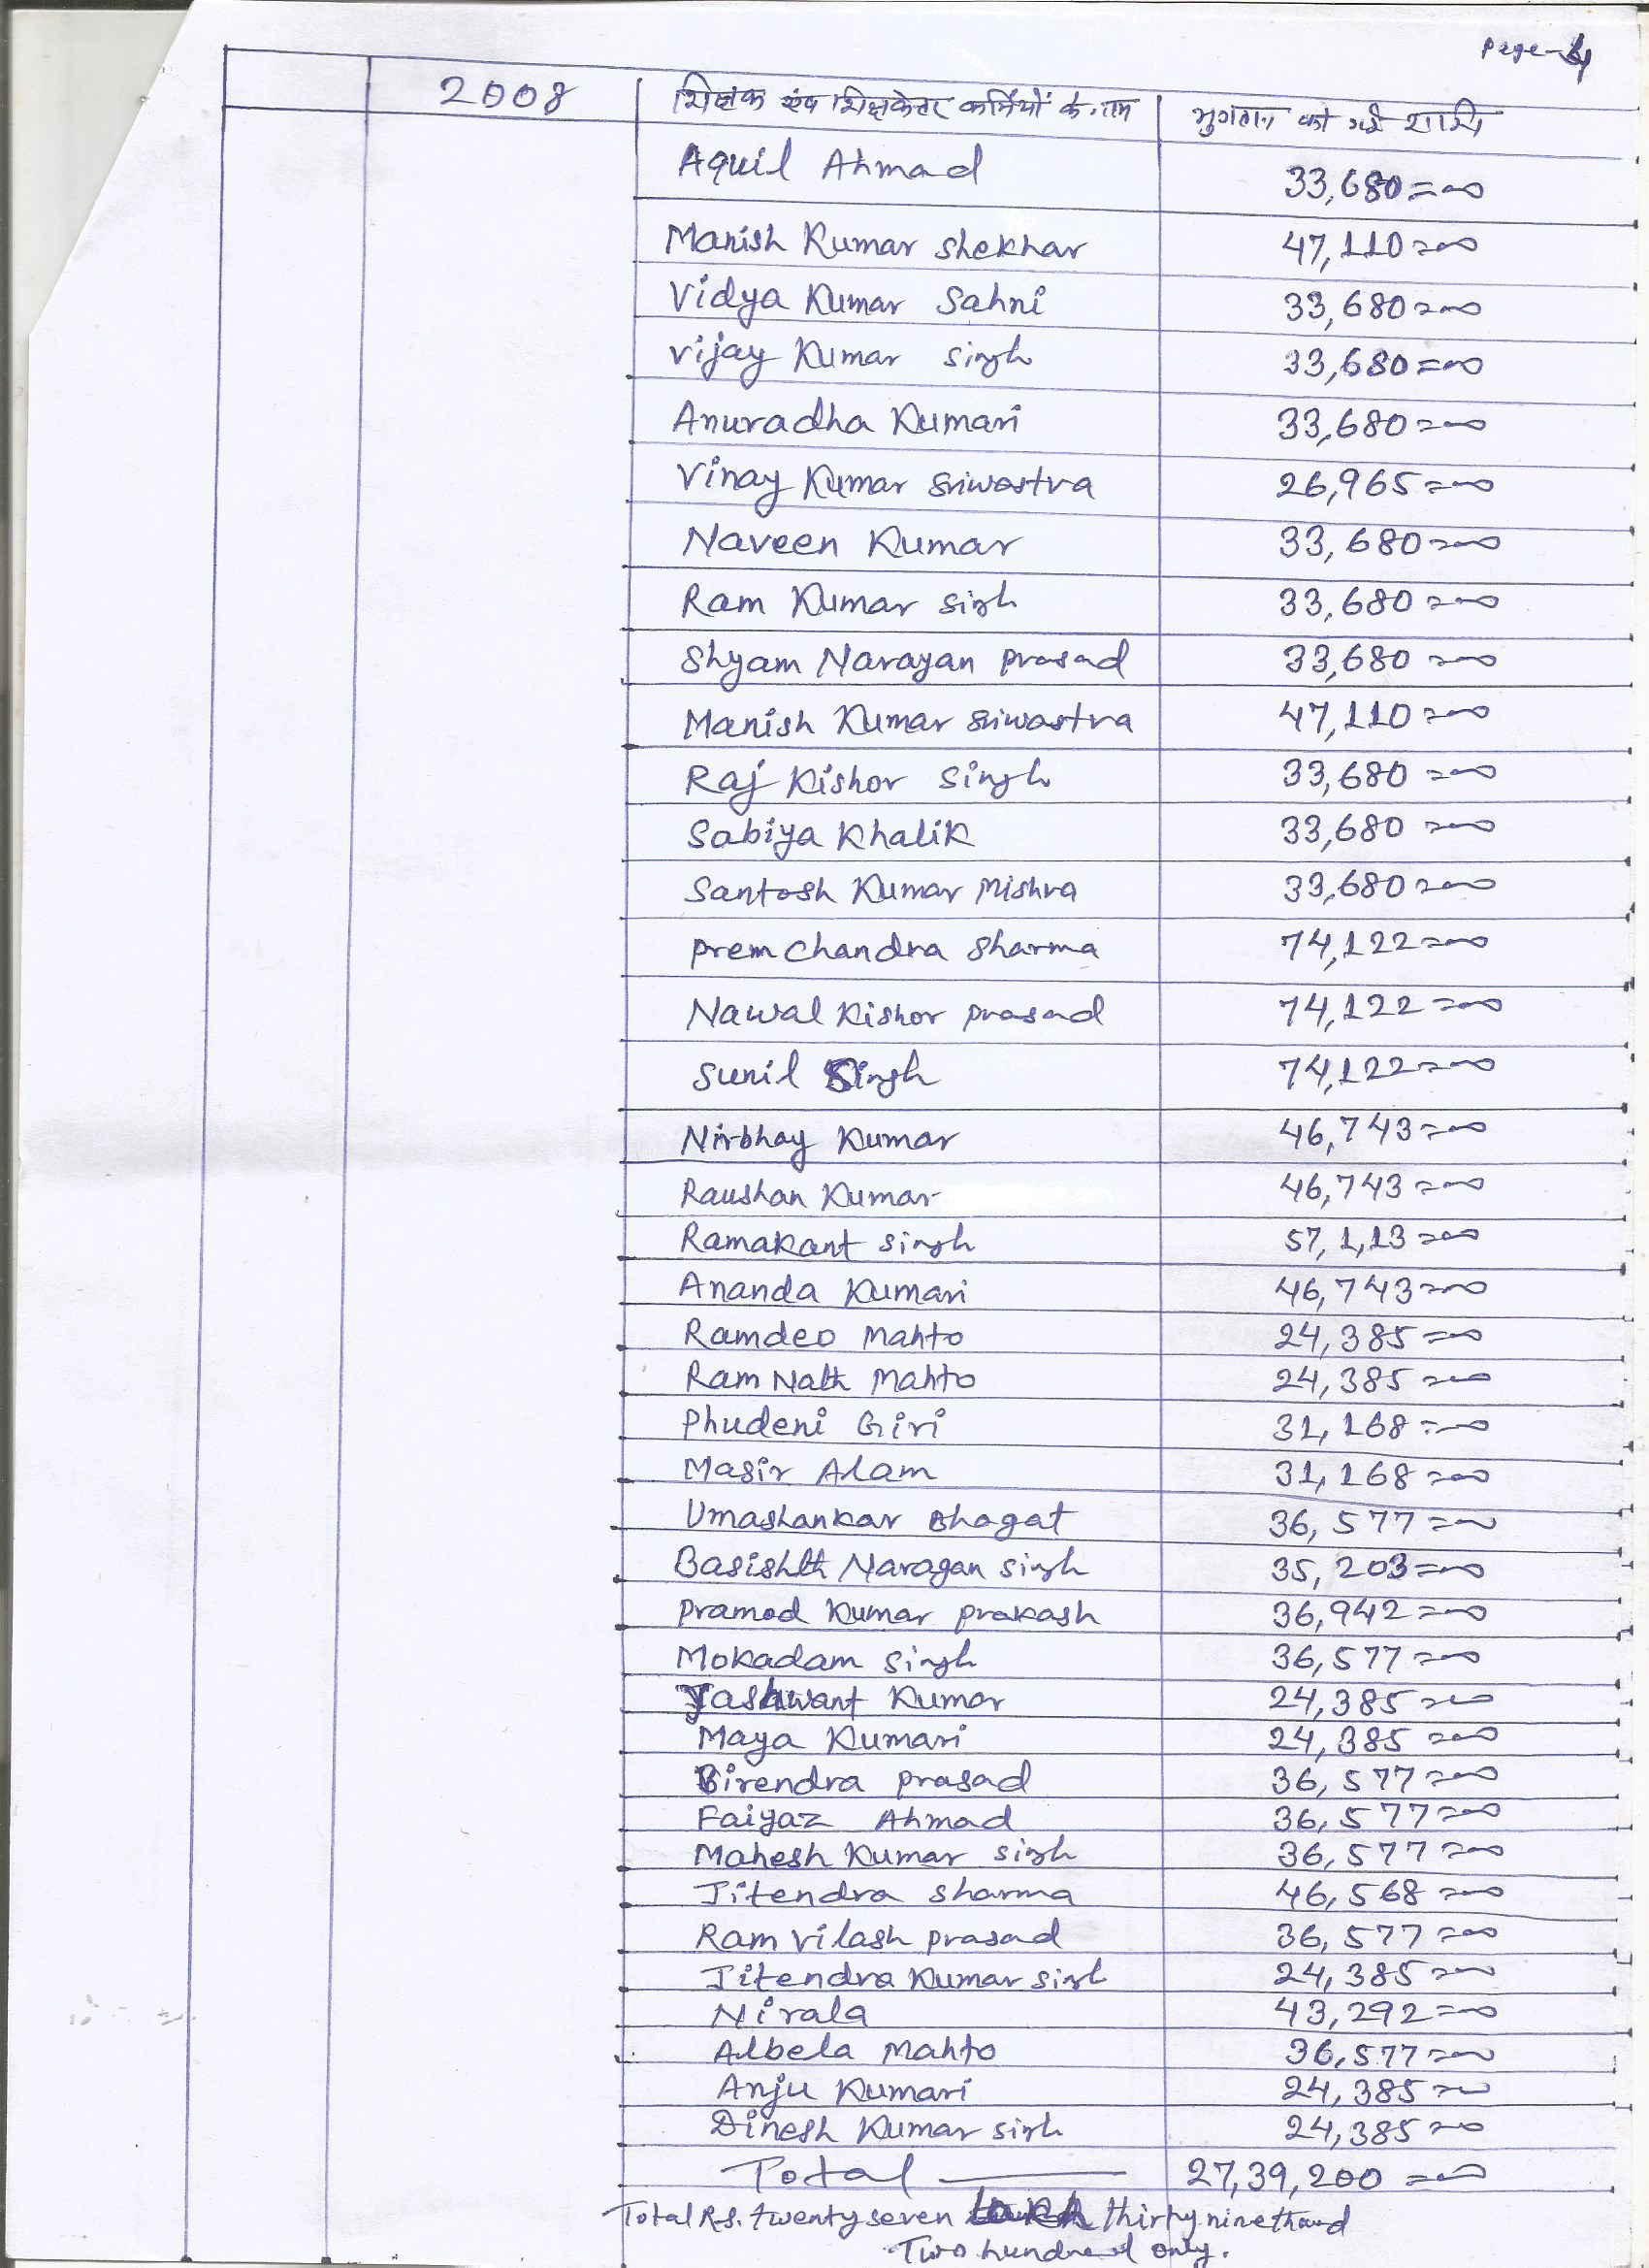 Page-4
2008 शिक्षक एंव शिक्षकेत्तर कर्मियों के नाम भुगतान की गई राशि
Aquil Ahmad 33,680=00
Manish Kumar shekhar 47,110=00
Vidya Kumar Sahni 33,680=00
Vijay Kumar Singh 33,680=00
Anuradha Kumari 33,680=00
Vinay Kumar Sriwastva 26,965=00
Naveen Kumar 33,680=00
Ram Kumar singh 33,680=00
Shyam Narayan prasad 33,680=00
Manish Kumar Sriwastva 47,110=00
Raj Kishor Singh 33,680=00
Sabiya Khalik 33,680=00
Santosh Kumar Mishra 33,680=00
Prem Chandra Sharma 74,122=00
Nawal Kishor prasad 74,122=00
Sunil Singh 74,122=00
Nirbhay Kumar 46,743=00
Raushan Kumar 46,743=00
Ramakant singh 57,1,13=00
Ananda Kumari 46,743=00
Ramdeo Mahto 24,385=00
Ram Nath Mahto 24,385=00
Phudeni Giri 31,168=00
Masir Alam 31,168=00
Umashankar Bhagat 36,577=00
Basishth Narayan singh 35,203=00
Pramod Kumar prakash 36,942=00
Mokadam Singh 36,577=00
Yashwant Kumar 24,385=00
Maya Kumari 24,385=00
Birendra prasad 36,577=00
Faiyaz Ahmad 36,577=00
Mahesh Kumar singh 36,577=00
Jitendra Sharma 46,568=00
Ram Vilash prasad 36,577=00
Jitendra Kumar singh 24,385=00
Nirala 43,292=00
Albela Mahto 36,577=00
Anju Kumari 24,385=00
Dinesh Kumar singh 24,385=00
Total — 27,39,200=00
Total Rs. twenty seven Lakh thirty nine thousand
Two hundred only.